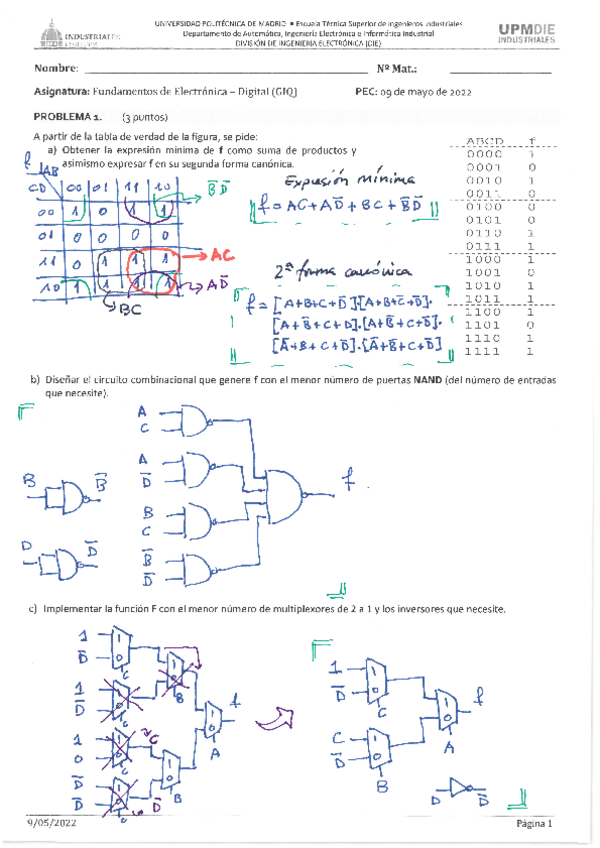 UNIVERSIDAD POLITÉCNICA DE MADRID • Escuela Técnica Superior de Ingenieros Industriales
Departamento de Automática, Ingeniería Electrónica e Informática Industrial
DIVISIÓN DE INGENIERÍA ELECTRÓNICA (DIE)
INDUSTRIALES
UPMDIE
INDUSTRIALES
Nombre: Nº Mat.:
Asignatura: Fundamentos de Electrónica – Digital (GIQ) PEC: 09 de mayo de 2022
PROBLEMA 1. (3 puntos)
A partir de la tabla de verdad de la figura, se pide:
a) Obtener la expresión mínima de f como suma de productos y
asimismo expresar f en su segunda forma canónica.
ABCD f
0000 1
0001 0
0010 1
0011 0
0100 0
0101 0
0110 1
0111 1
1000 1
1001 0
1010 1
1011 1
1100 1
1101 0
1110 1
1111 1
f
AB
CD 00 01 11 10
00 1 0 1 1
01 0 0 0 0
11 0 1 1 1
10 1 1 1 1
B̄D̄
AC
AD̄
BC
Expresión mínima
f = AC + AD̄ + BC + B̄D̄
2ª forma canónica
f = [A+B+C+D̄].[A+B+C̄+D̄].
[A+B̄+C+D].[A+B̄+C+D̄].
[Ā+B+C+D̄].[Ā+B̄+C+D̄]
b) Diseñar el circuito combinacional que genere f con el menor número de puertas NAND (del número de entradas
que necesite).
A
C
A
D̄
B
C
B̄
D̄
f
B B̄
D D̄
c) Implementar la función F con el menor número de multiplexores de 2 a 1 y los inversores que necesite.
1
D̄
1
D̄
1
0
D̄
D̄
1
0
C
B
A
f
1
D̄
C
C
D̄
B
A
f
D D̄
9/05/2022 Página 1